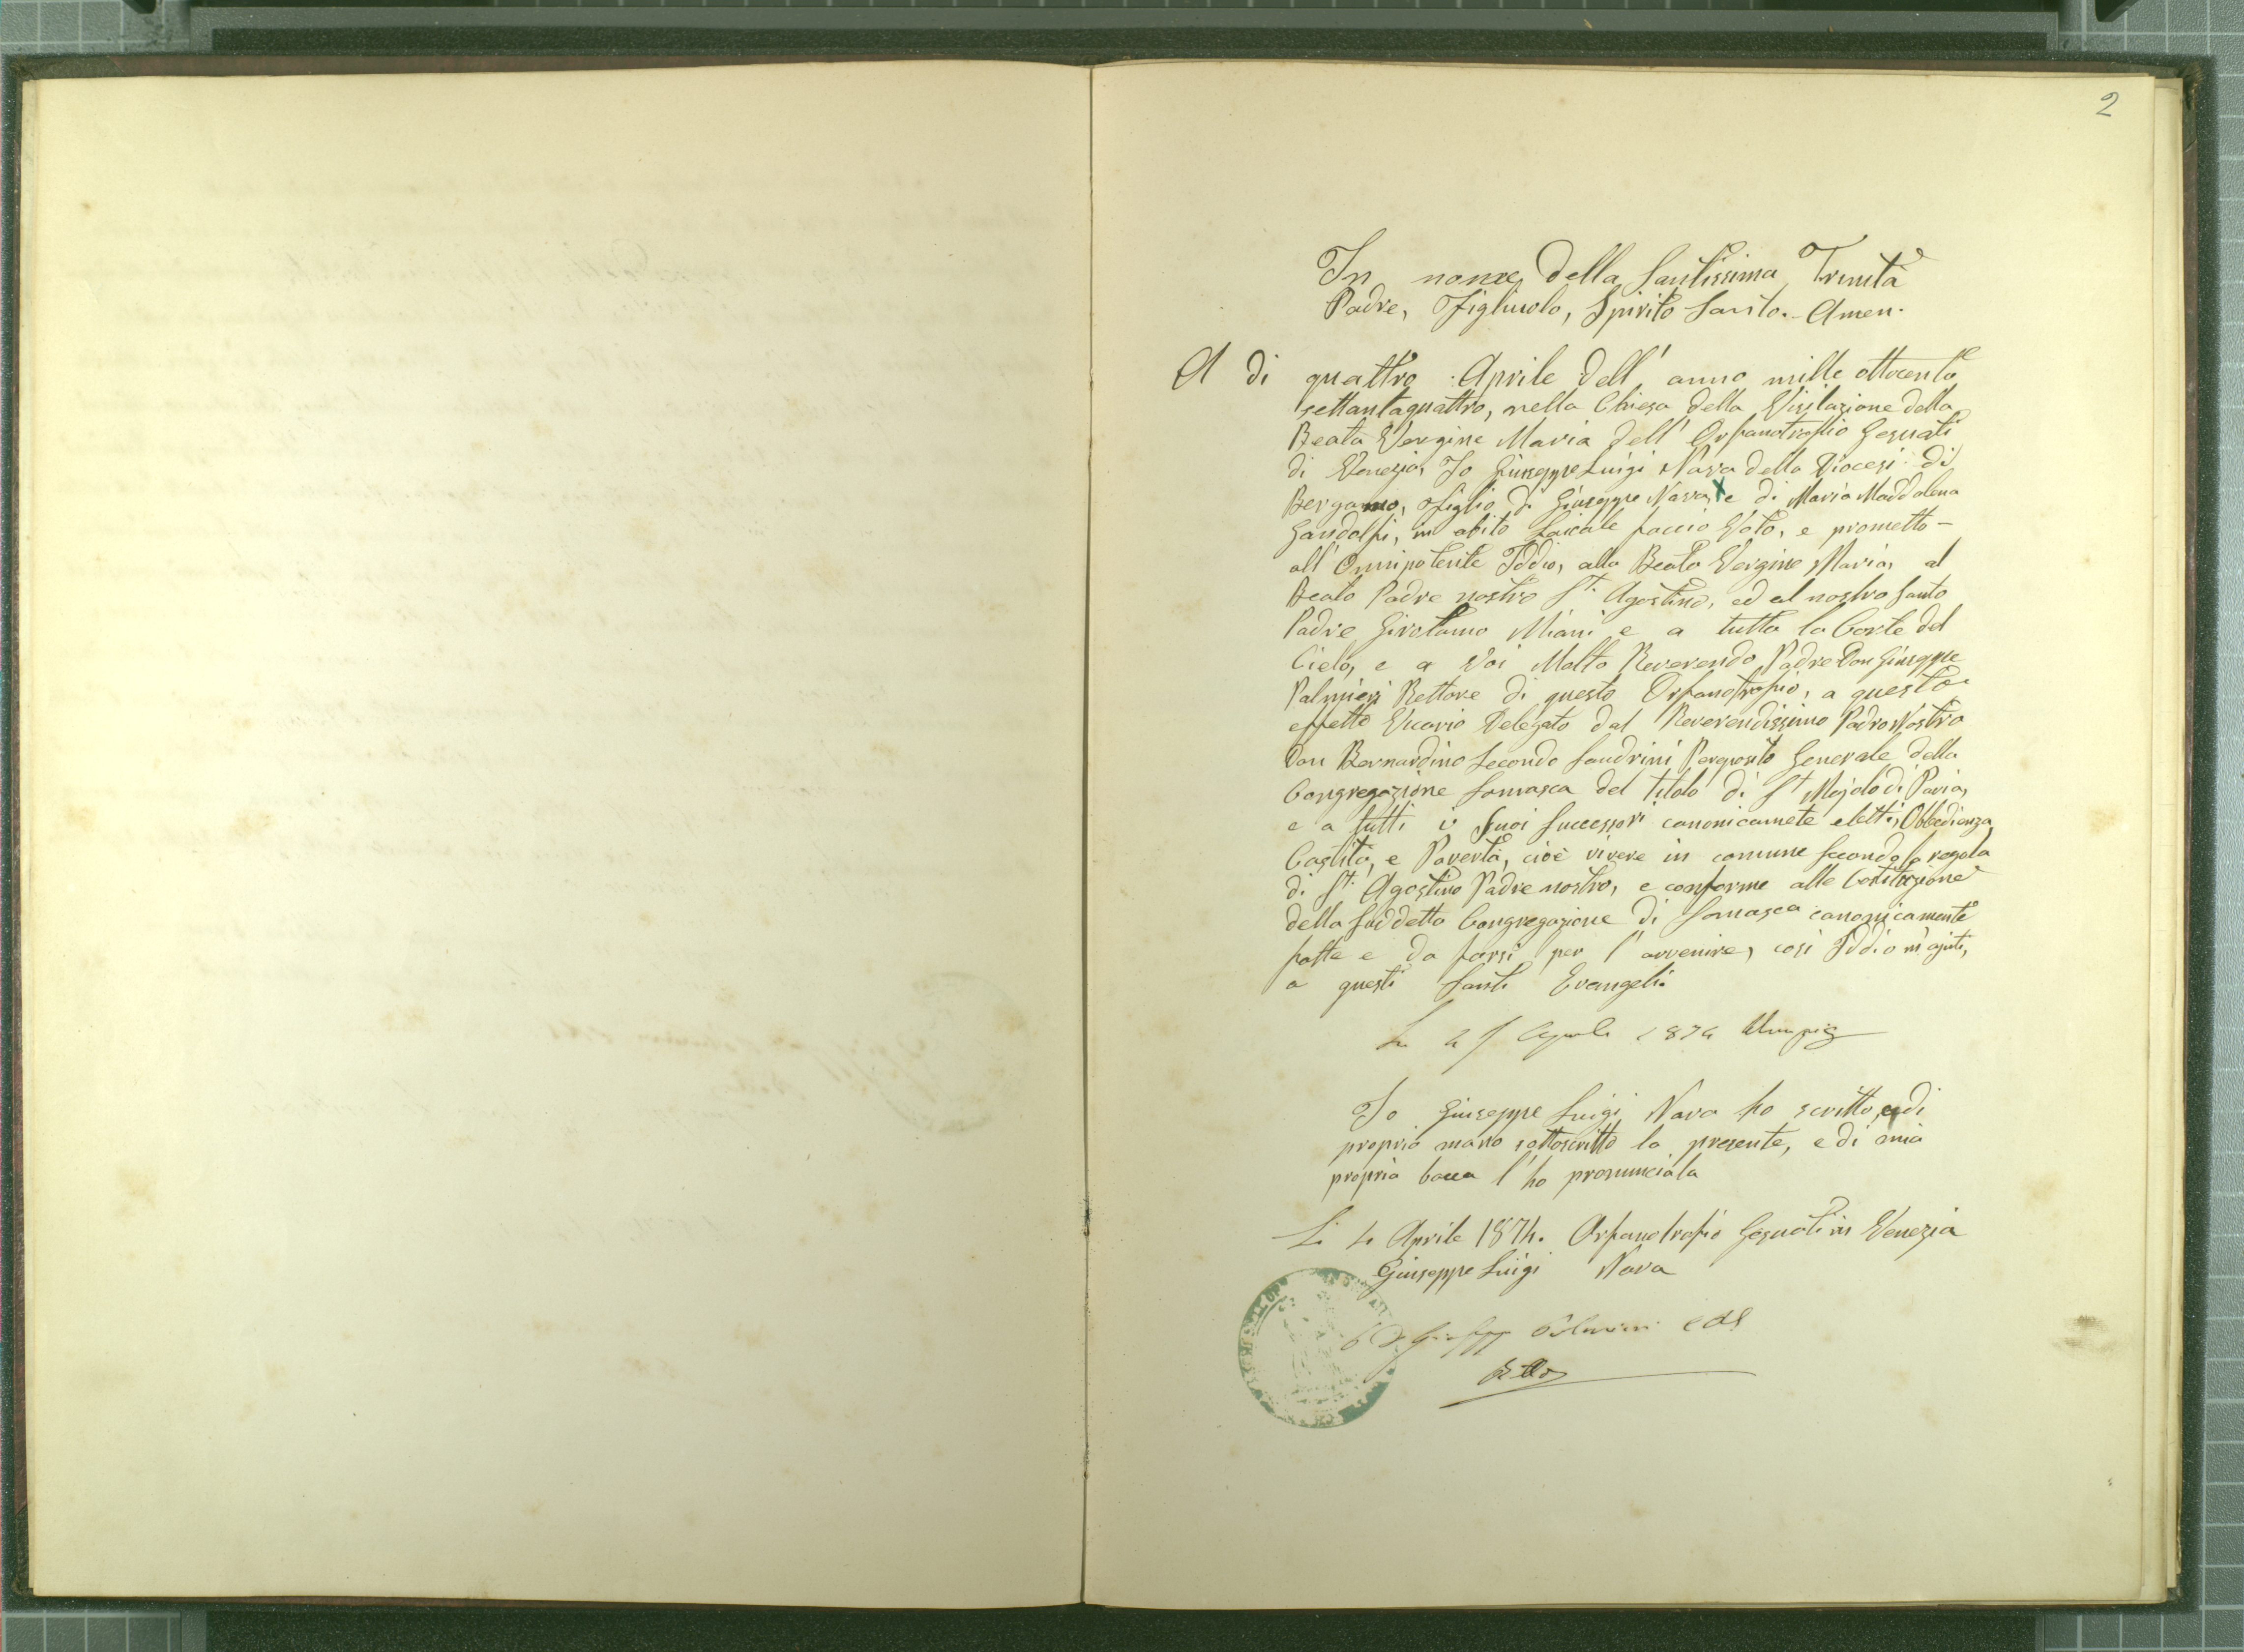 2
In nome della Santissima Trinità
Padre, Figliuolo, Spirito Santo. Amen.
A di quattro Aprile dell' anno mille ottocento
settantaquattro, nella Chiesa della Visitazione della
Beata Vergine Maria dell' Orfanotrofio Gesuati
di Venezia, Io Giuseppe Luigi Nava della Diocesi di
Bergamo, figlio di Giuseppe Nava, x e di Maria Maddalena
Gandolfi, in abito Laicale faccio Voto, e prometto –
all' Onnipotente Iddio, alla Beata Vergine Maria, al
Beato Padre nostro St. Agostino, ed al nostro Santo
Padre Girolamo Miani e a tutta la Corte del
Cielo, e a Voi Molto Reverendo Padre Don Giuseppe
Palmieri Rettore di questo Orfanotrofio, a questo
effetto Vicario Delegato dal Reverendissimo Padre Nostro
Don Bernardino Secondo Sandrini Perposito Generale della
Congregazione Somasca del titolo di St Majolo di Pavia,
e a tutti i Suoi Successori canonicamete eletti, Obbedienza,
Castità, e Povertà, cioè vivere in comune secondo la regola
di St. Agostino Padre nostro, e conforme alle Costituzione
della Suddetta Congregazione di Somasca canonicamente
fatte e da farsi per l' avvenire, così Iddio m'ajuti,
a questi Santi Evangeli.
Aprile 1874
Io Giuseppe Luigi Nava ho scritto, e di
propria mano sottoscritto la presente, e di mia
propria bocca l' ho pronunciata
Li 4 Aprile 1874. Orfanotrofio Gesuati in Venezia
Giuseppe Luigi Nava
D Giuseppe Palmieri CRS
Rettore